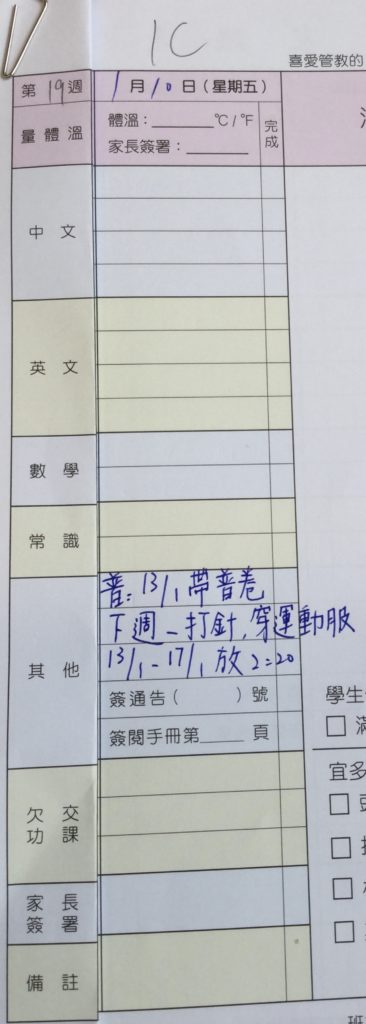 1C
喜愛管教的
第19週 1月10日(星期五)
量體溫 體溫:______℃/℉ 完成
家長簽署:______
中文
英文
數學
常識
其他
普:13/1 帶普卷
下週一打針,穿運動服
13/1-17/1 放2:20
簽通告( )號
簽閱手冊第____頁
學生
宜多
欠交功課
家長簽署
備註